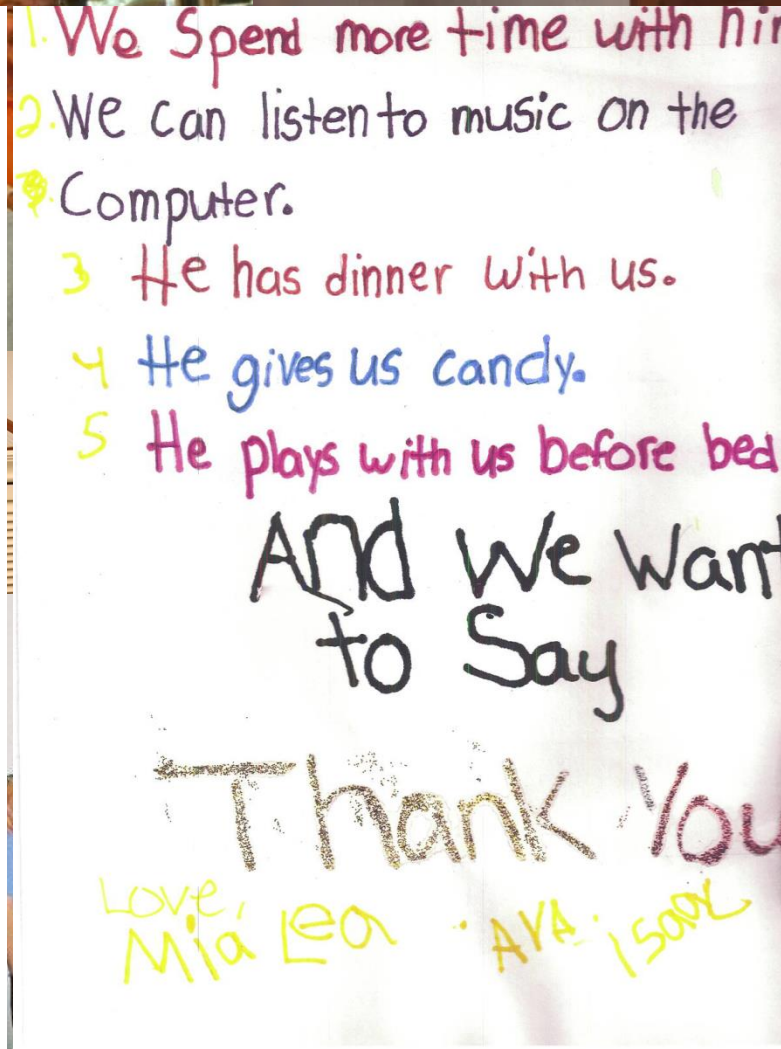 1. We Spend more time with him
2. We can listen to music on the
Computer.
3 He has dinner with us.
4 He gives us candy.
5 He plays with us before bed
And We Want
to Say
Thank You
Love,
Mia Lea . AVA . isaac